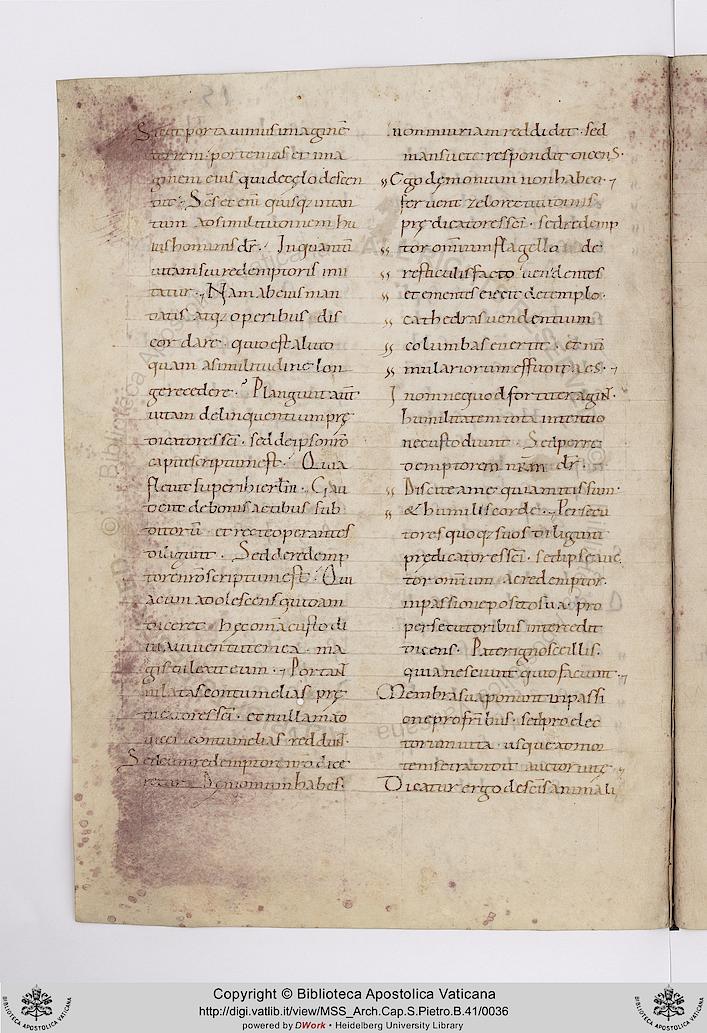 Sicut portauimus imaginē
terreni· portemus et ima
ginem eius qui de cęlo descen
dit·
Sc̄s et enī quisq; intan
tum ad similitudinem hu
ius hominis dr̄· Inquantū
uitam sui redemptoris imi
tatur· Nam ab eius man
datis atq; operibus dis
cordare· quid est aliud
quam a similitudine lon
ge recedere· Plangunt aūt
uitam delinquentium prę
dicatores sc̄i· sed de ipso nr̄o
capite scriptum est· Quia
fleuit super hierl̄m· Gau
dent de bonis actibus sub
ditorū· et recte operantes
diligunt· Sed de redemp
tore nr̄o scriptum est· Qui
a cum adolescens quidam
diceret· hęc om̄a custodi
ui a iuuentute mea· ma
gis dilexit eum· Portant
inlatas contumelias prę
dicatores sc̄i· et nulla mod
contumelias reddun̄t·
Sed cum redemptori nr̄o dice
retur· Dęmonium habes·
non iniuriam reddidit· sed
mansuete respondit dicens·
Ego dęmonium non habeo·
feruent zelo rectitudinis
prędicatores sc̄i· sed redemp
tor omnium flagello de
resticulis facto uendentes
et ementes eiecit de templo·
cathedras uendentium
columbas euertit· et nū
mulariorum effudit aes·
In omne quod fortiter agun̄t·
humilitatem tota intentio
ne custodiunt· Sed per re
demptorem nr̄am dr̄·
Discite a me quia mitis sum·
& humilis corde· Persecu
tores quoq; suos diligunt
predicatores sc̄i· sed ipse auc
tor omnium ac redemptor·
in passione positos ua pro
persecutoribus intercedit
dicens· Pater ignosce illis·
quia nesciunt quid faciunt·
Membra sua ponunt in passi
one pro fr̄ibus· sed pro elec
torum uita· usque ad mor
tem se tradidit auctor uitę·
Dicatur ergo de sc̄is animali
Copyright © Biblioteca Apostolica Vaticana
http://digi.vatlib.it/view/MSS_Arch.Cap.S.Pietro.B.41/0036
powered by DWork • Heidelberg University Library